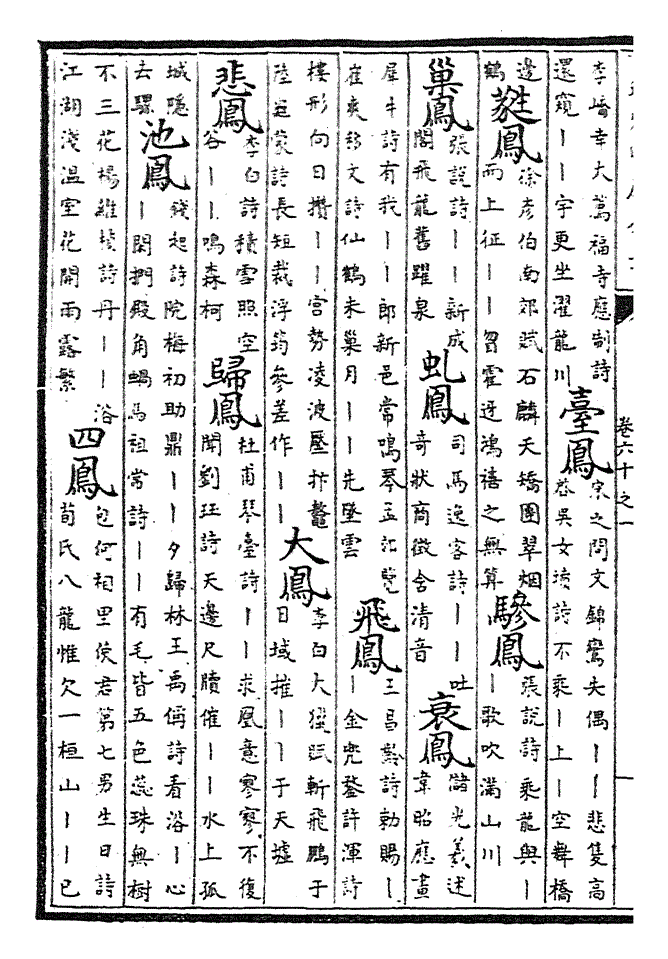 李嶠幸大薦福寺應制詩
還窺｜｜宇更坐濯龍川
臺鳳
宋之問文錦鸞失偶｜｜悲隻高
啓吳女墳詩不乘｜上｜空舞橋
邊
鶴
蕤鳳
徐彥伯南郊賦石麟夭矯團翠烟
而上征｜｜習霍迓鴻禧之無算
驂鳳
張說詩乘龍與｜
｜歌吹滿山川
巢鳳
張說詩｜｜新成
閣飛龍舊躍泉
虬鳳
司馬逸客詩｜｜吐
奇狀商徵含清音
衰鳳
儲光羲述
韋昭應畫
犀牛詩有我｜｜郎新邑常鳴琴孟江
崔爽移文詩仙鶴未巢月｜｜先墜雲
飛鳳
王昌齡詩勅賜｜
｜金兜鍪許渾詩
樓形向日攢｜｜宮勢凌波壓抃鼇
陸龜蒙詩長短裁浮筠參差作｜｜
大鳳
李白大獵賦斬飛鵬于
日域摧｜｜于天墟
悲鳳
李白詩積雪照空
谷｜｜鳴森柯
歸鳳
杜甫琴臺詩｜｜求凰意寥寥不復
聞劉珏詩天邊尺牘催｜｜水上孤
城隱
去騾
池鳳
錢起詩院梅初助鼎｜｜夕歸林王禹偁詩看浴｜心
｜閣捫殿角蝸馬祖常詩｜｜有毛皆五色蕊珠無樹
不三花楊維楨詩丹｜｜浴
江湖淺溫室花開雨露繁
四鳳
包何相里使君第七男生日詩
荀氏八龍惟欠一桓山｜｜已
卷六十之一
一